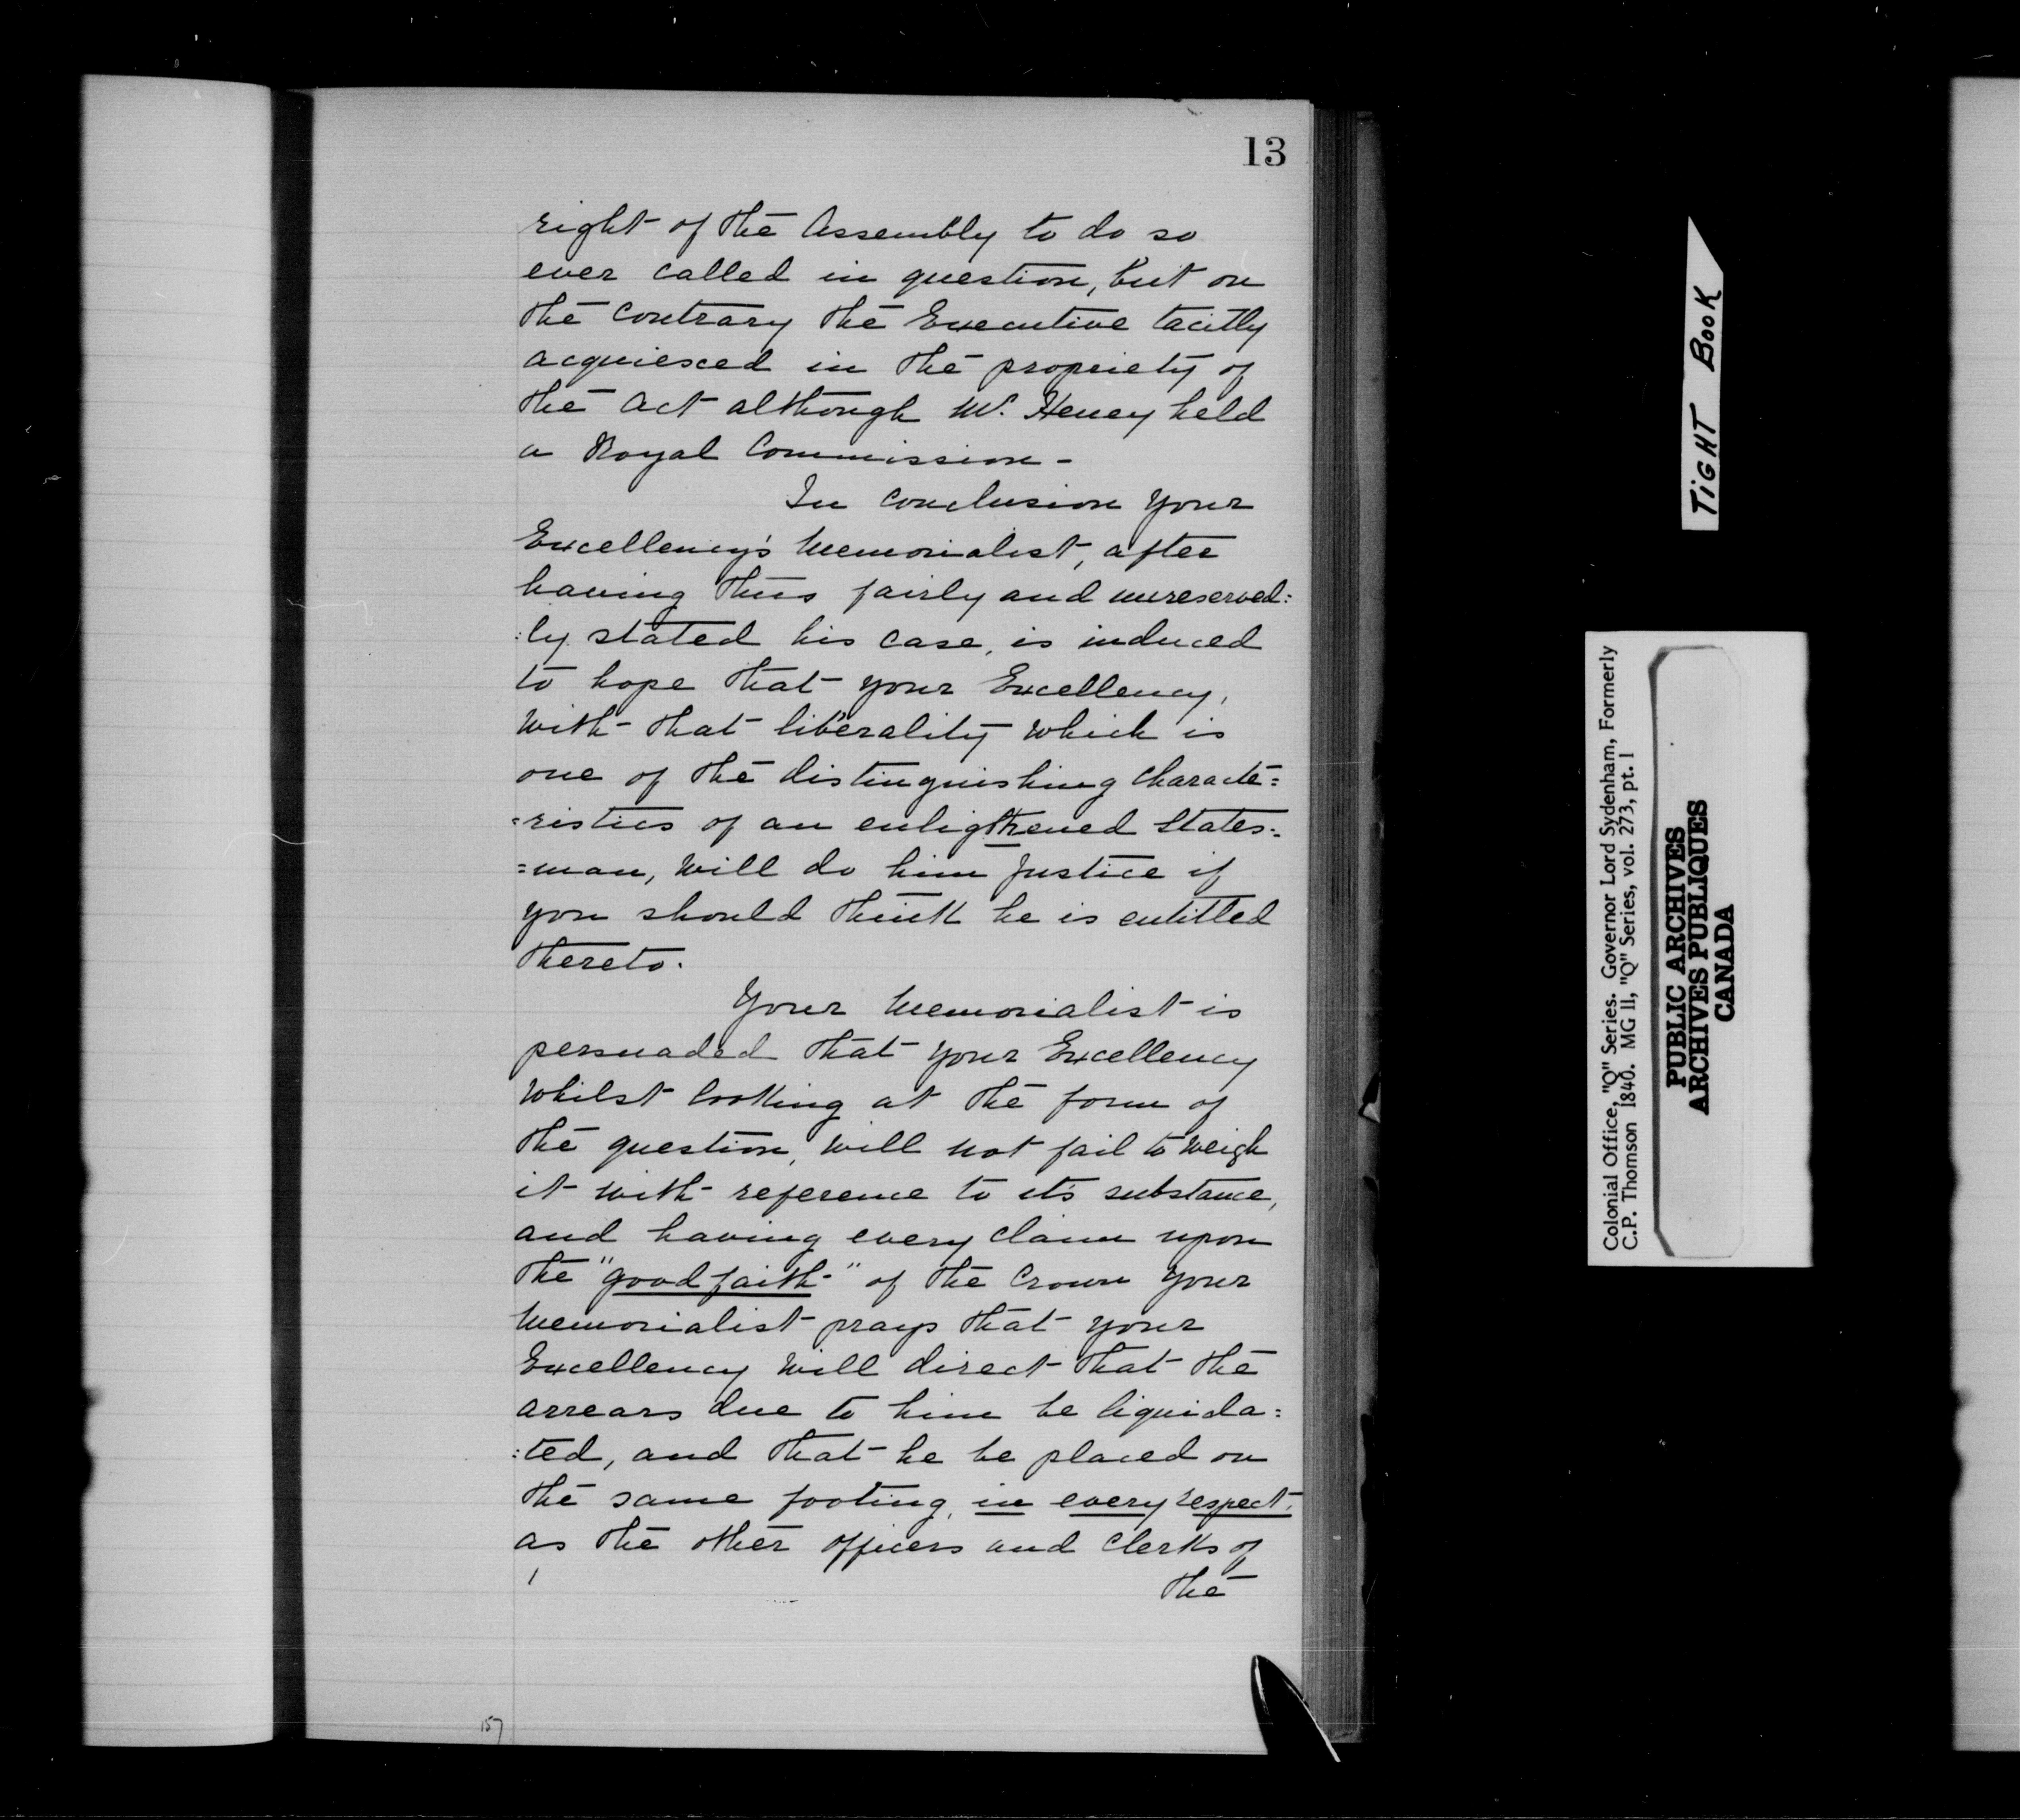 13
right of the Assembly to do so
ever called in question, but on
the contrary the Executive tacitly
acquiesced in the propriety of
the act although Mr. Heney held
a Royal Commission -
In conclusion your
Excellency's Memorialist, after
having thus fairly and unreserved:
:ly stated his case, is induced
to hope that your Excellency,
with that liberality which is
one of the distinguishing characte=
=ristics of an enligthened States=
=man, will do him justice if
you should think he is entitled
thereto.
Your Memorialist is
persuaded that your Excellency
whilst looking at the form of
the question, will not fail to weigh
it with reference to its substance,
and having every claim upon
the "good faith" of the Crown your
Memorialist prays that your
Excellency will direct that the
arrears due to him be liquida:
:ted, and that he be placed on
the same footing, in every respect,
as the other officers and clerks of
the
157
TIGHT BOOK
Colonial Office, "Q" Series. Governor Lord Sydenham, Formerly
C.P. Thomson 1840. MG 11, "Q" Series, vol. 273, pt. 1
PUBLIC ARCHIVES
ARCHIVES PUBLIQUES
CANADA